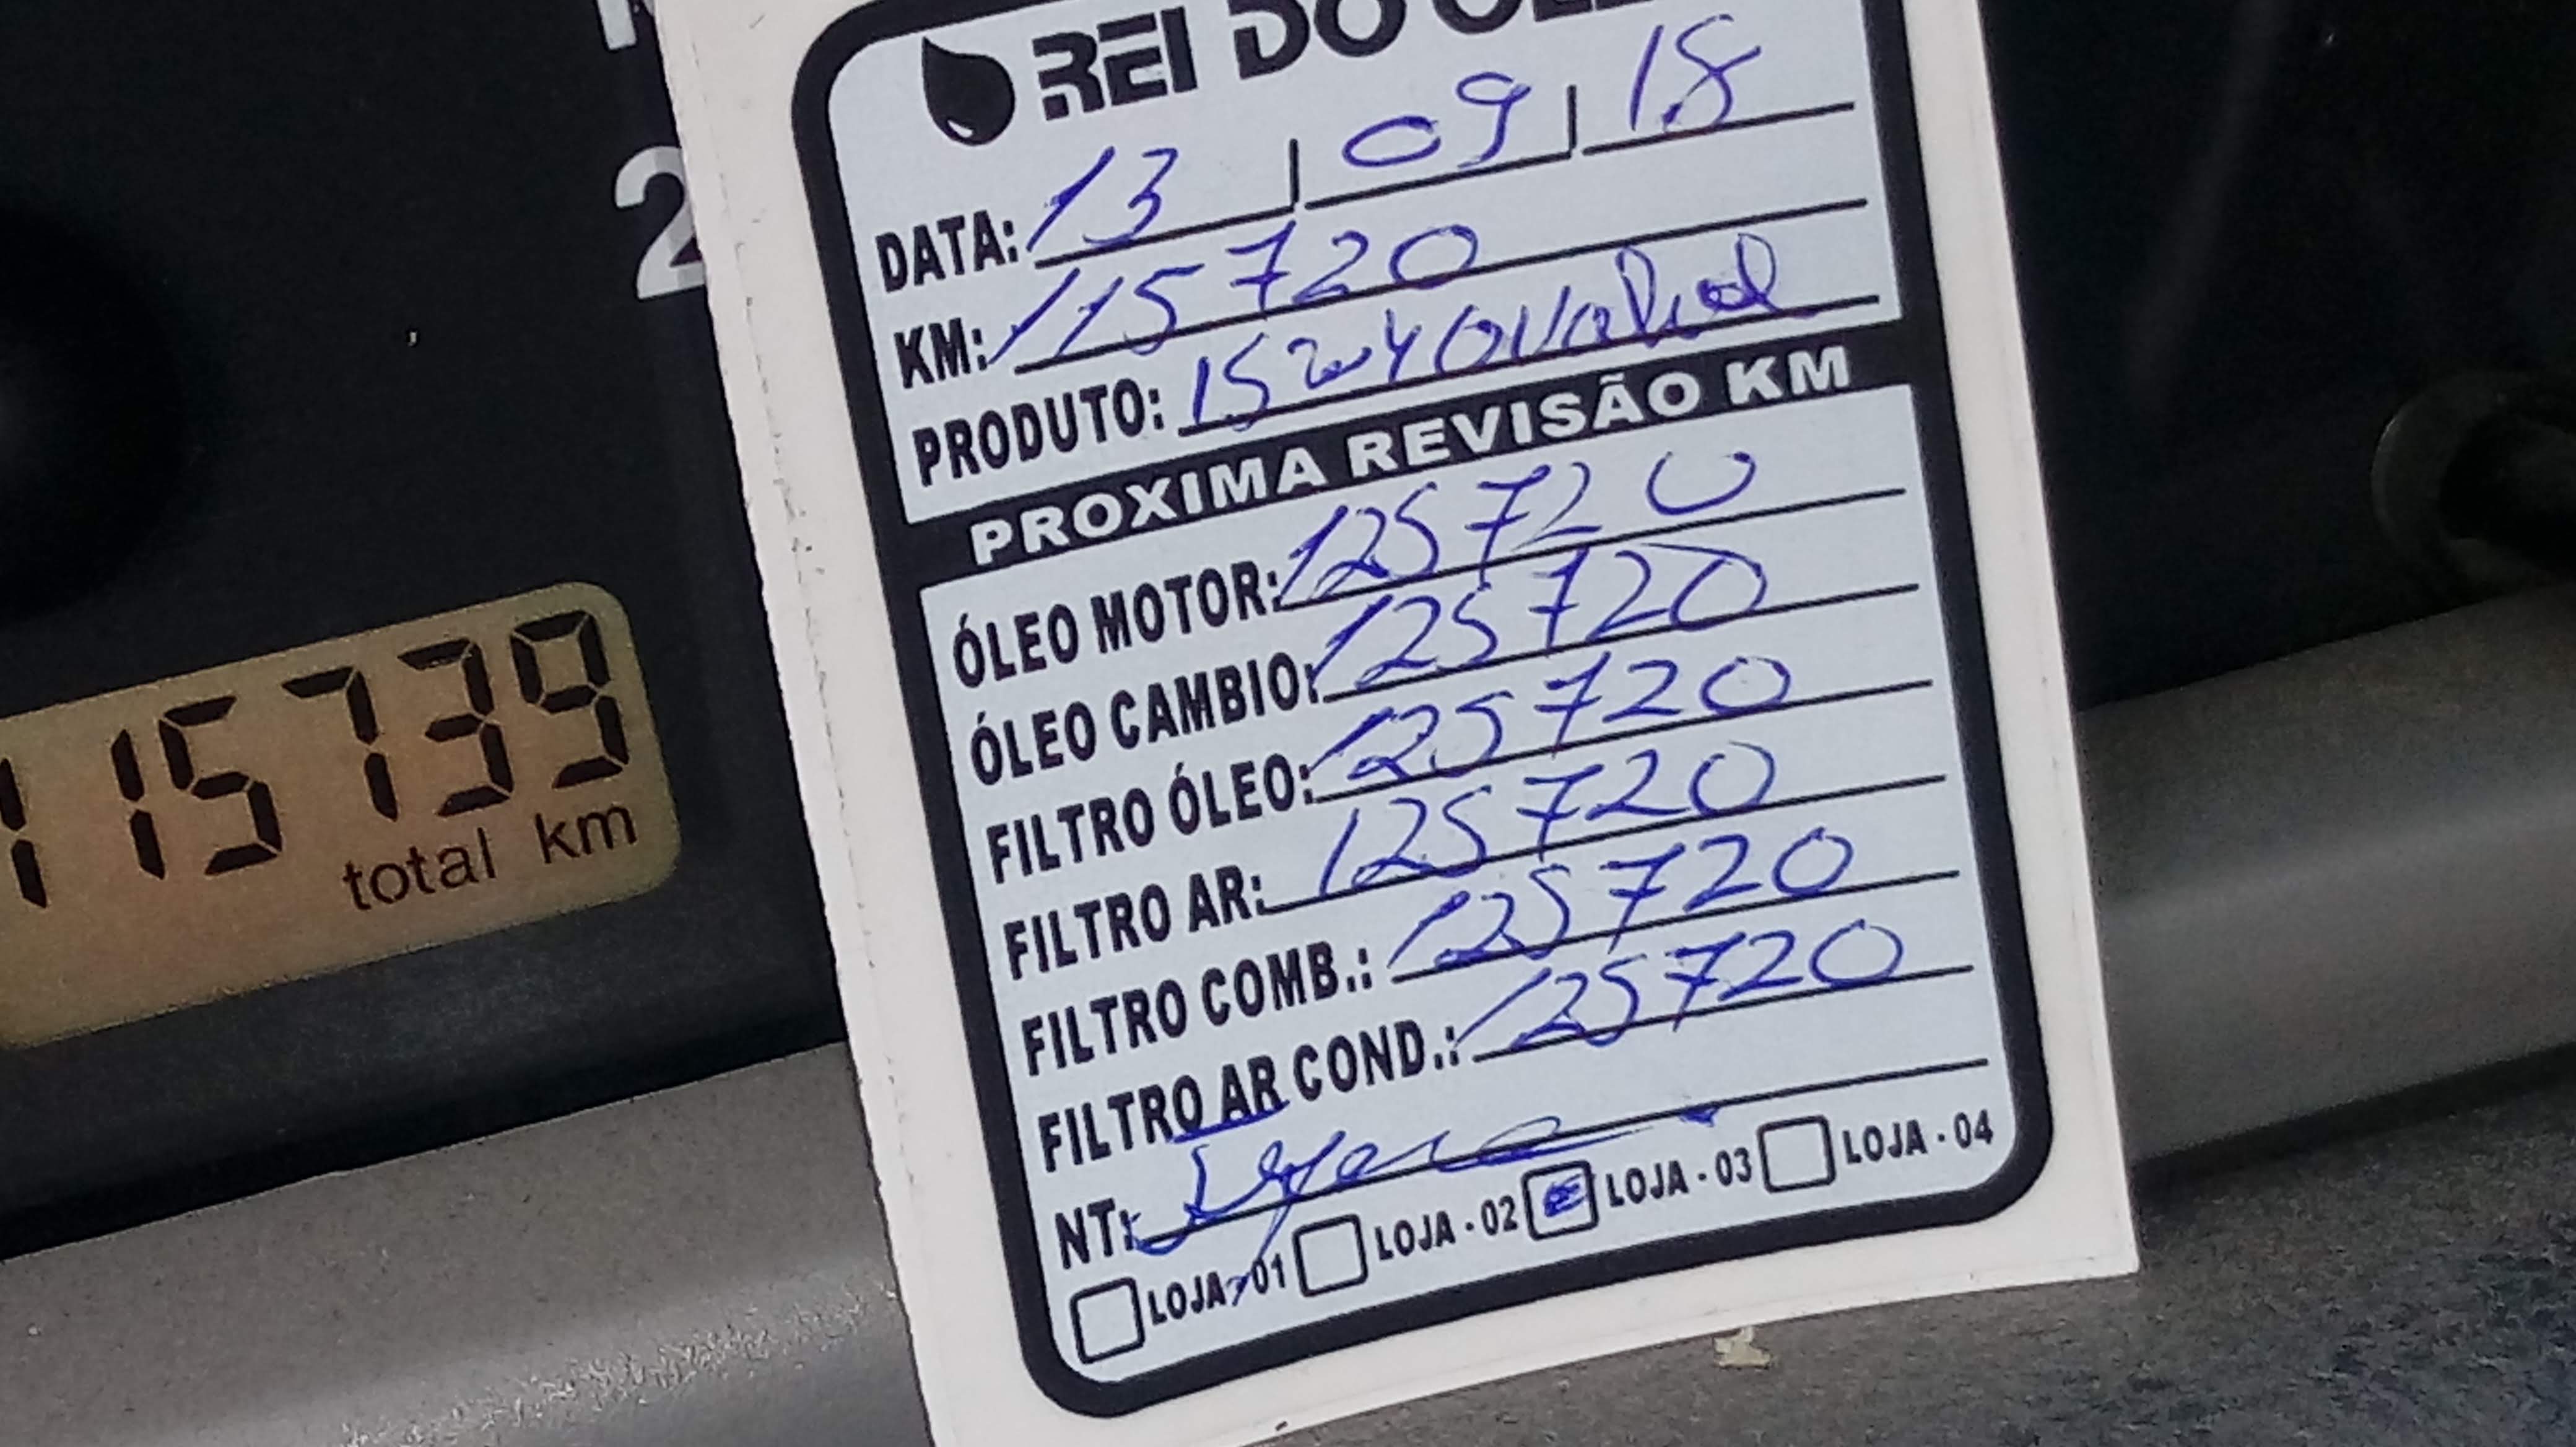 REI DO
DATA: 13 | 09 | 18
KM: 115720
PRODUTO: 15w40
PROXIMA REVISÃO KM
ÓLEO MOTOR: 125720
ÓLEO CAMBIO: 125720
FILTRO ÓLEO: 125720
FILTRO AR: 125720
FILTRO COMB.: 125720
FILTRO AR COND.: 125720
NT:
LOJA - 01 LOJA - 02 LOJA - 03 LOJA - 04
2
115739
total km